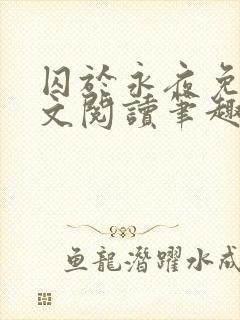 囚於永夜免
文閱讀筆趣
魚龍潛躍水成